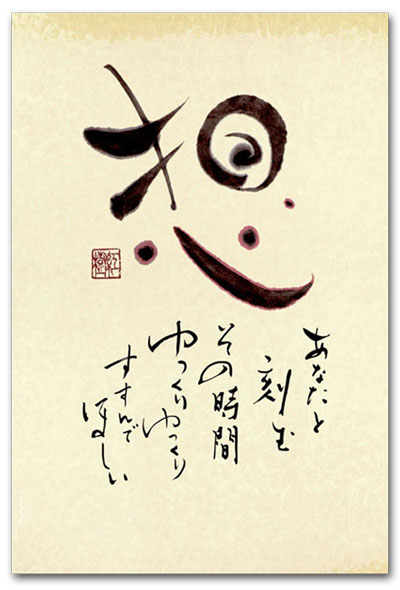 想
あなたと
刻む
その時間
ゆっくりゆっくり
すすんで
ほしい